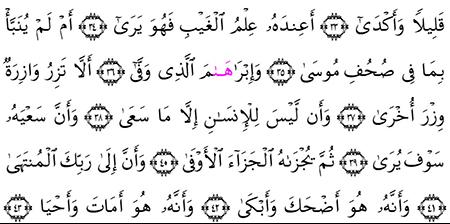 قَلِيلًا وَأَكْدَىٰٓ ﴿٣٣﴾ أَعِندَهُۥ عِلْمُ ٱلْغَيْبِ فَهُوَ يَرَىٰٓ ﴿٣٤﴾ أَمْ لَمْ يُنَبَّأْ
بِمَا فِى صُحُفِ مُوسَىٰ ﴿٣٥﴾ وَإِبْرَٰهِـۧمَ ٱلَّذِى وَفَّىٰٓ ﴿٣٦﴾ أَلَّا تَزِرُ وَازِرَةٌۭ
وِزْرَ أُخْرَىٰ ﴿٣٧﴾ وَأَن لَّيْسَ لِلْإِنسَـٰنِ إِلَّا مَا سَعَىٰ ﴿٣٨﴾ وَأَنَّ سَعْيَهُۥ
سَوْفَ يُرَىٰ ﴿٣٩﴾ ثُمَّ يُجْزَىٰهُ ٱلْجَزَآءَ ٱلْأَوْفَىٰ ﴿٤٠﴾ وَأَنَّ إِلَىٰ رَبِّكَ ٱلْمُنتَهَىٰ
﴿٤١﴾ وَأَنَّهُۥ هُوَ أَضْحَكَ وَأَبْكَىٰ ﴿٤٢﴾ وَأَنَّهُۥ هُوَ أَمَاتَ وَأَحْيَا ﴿٤٣﴾